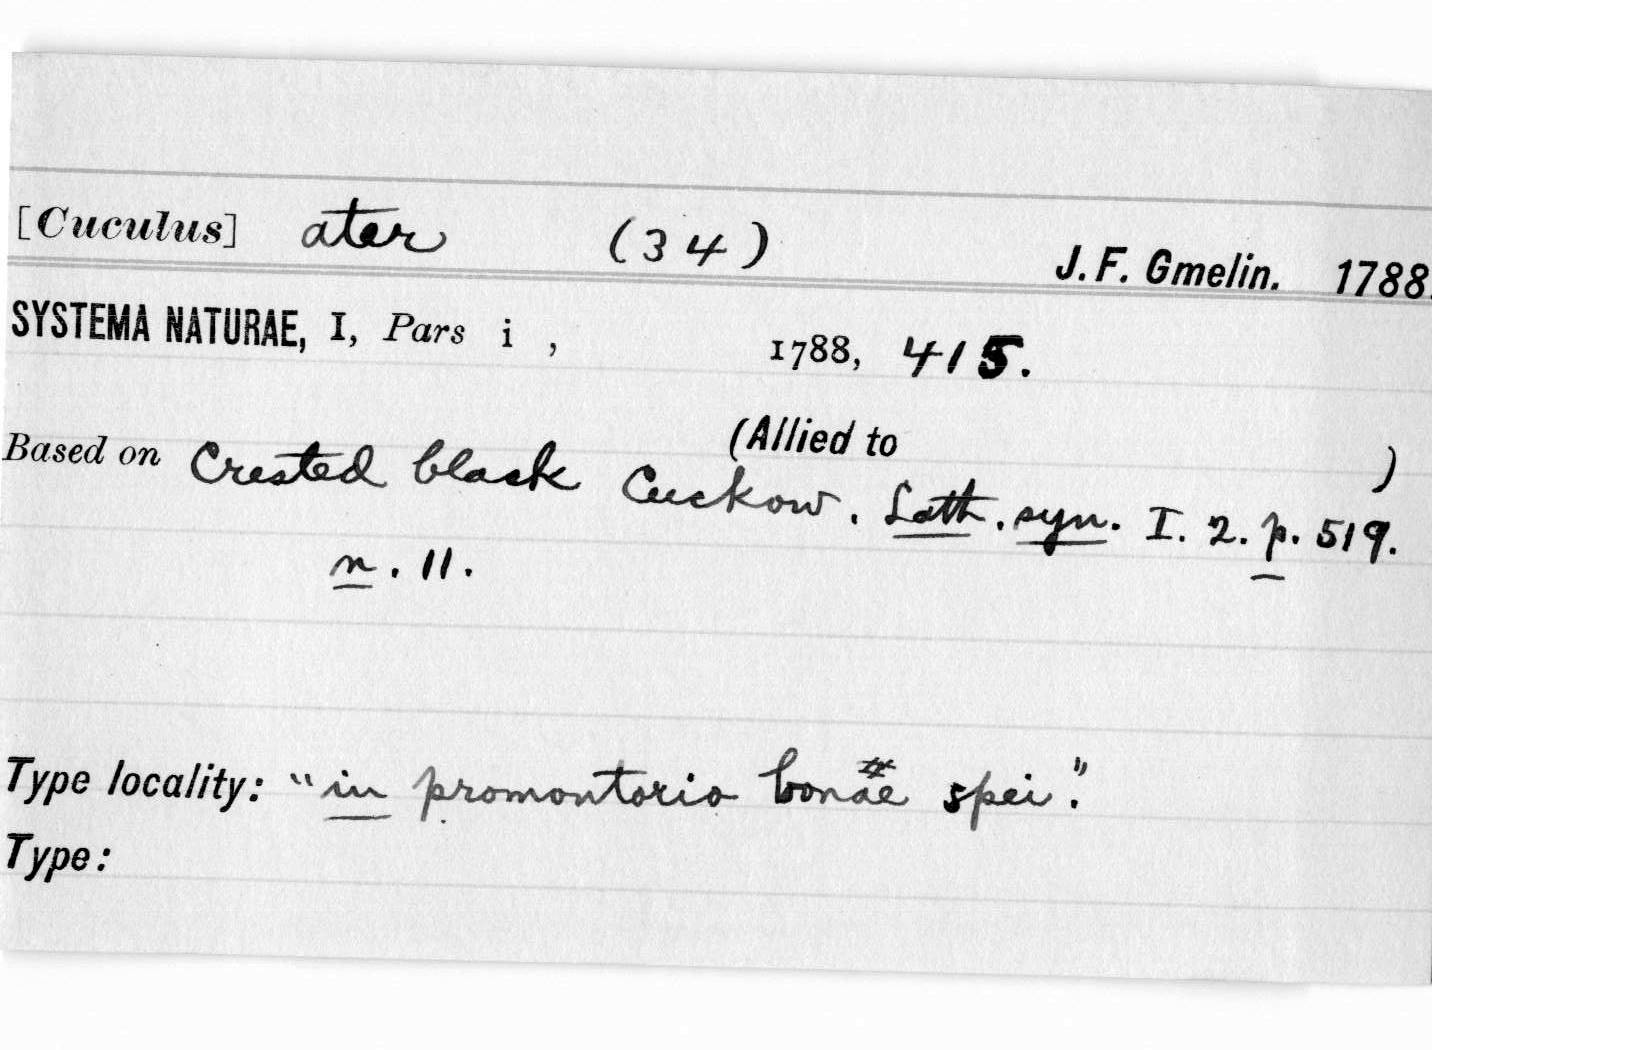 [Cuculus] ater (34) J. F. Gmelin. 1788.
SYSTEMA NATURAE, I, Pars i , 1788, 415.
(Allied to )
Based on Crested black Cuckow. Lath. syn. I. 2. p. 519.
n. 11.
Type locality: "in promontorio bonae spei."
Type: